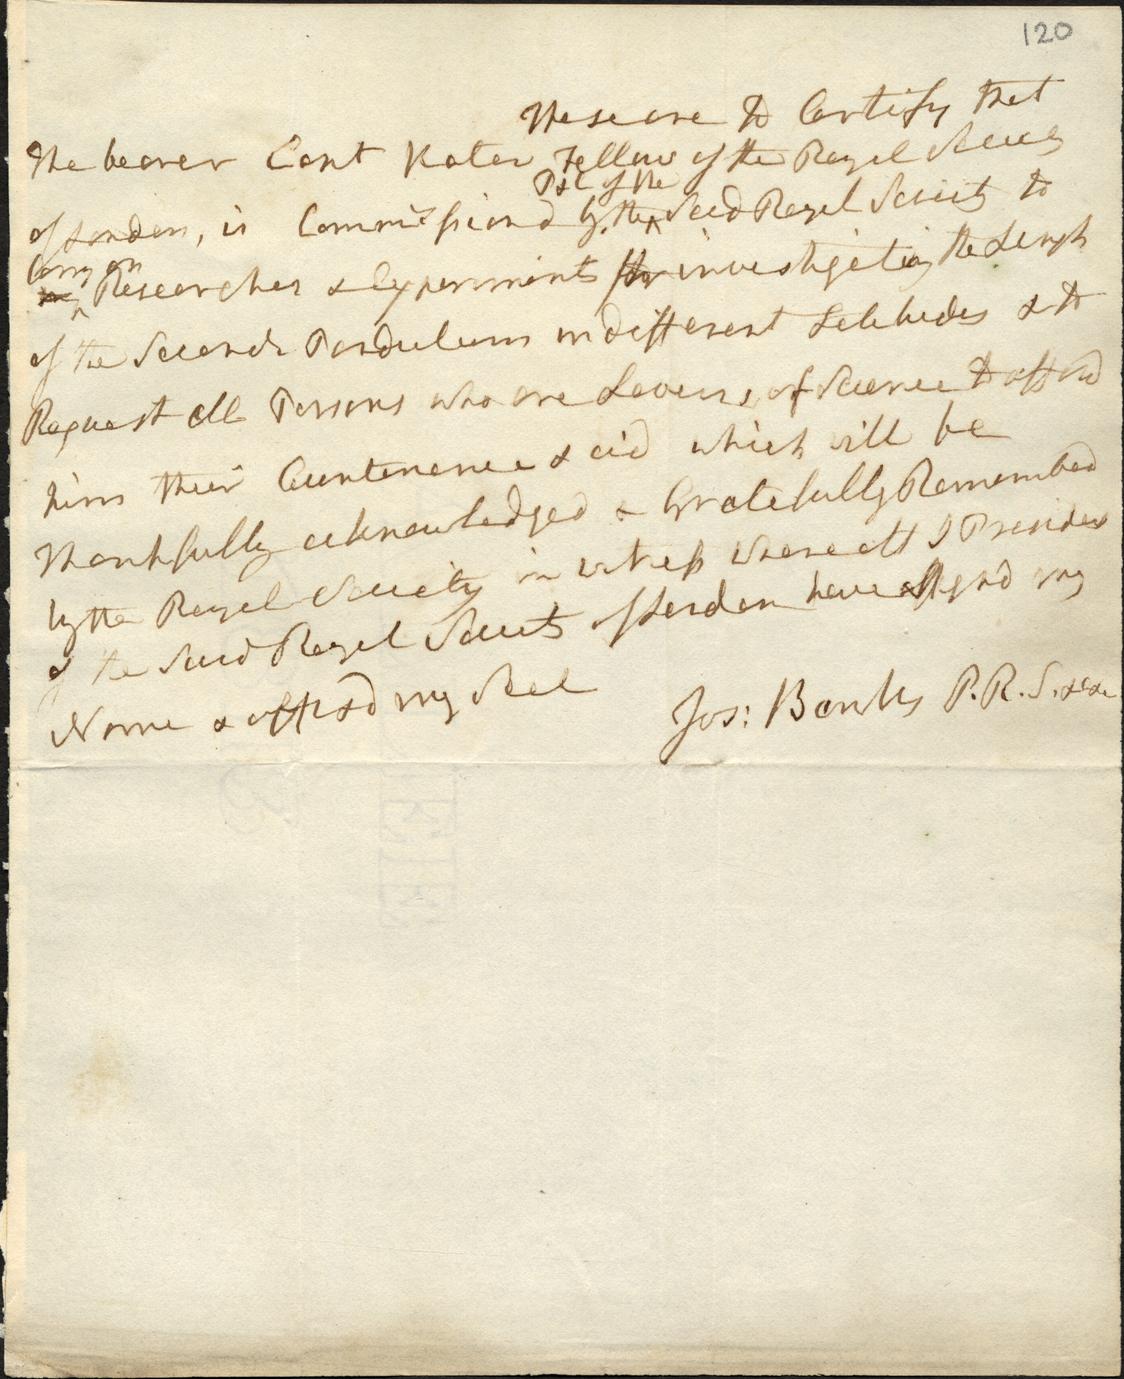 120
These are to Certify that
The bearer Capt Kater Fellow of the Royal Society
P & C of the
of London, is Commissiond by the Said Royal Society to
Carry on
Researches & Experiments for investigating the Length
of the Seconds Pendulum in different Latitudes & to
Request all Persons who are Lovers of Science to afford
him their Countenance & aid which will be
Thankfully acknowledged & Gratefully Remembred
by the Royal Society in witness whereoff I President
of the Said Royal Society of London have Signd my
Name & affixd my Seal
Jos: Banks P. R. S. &c &c